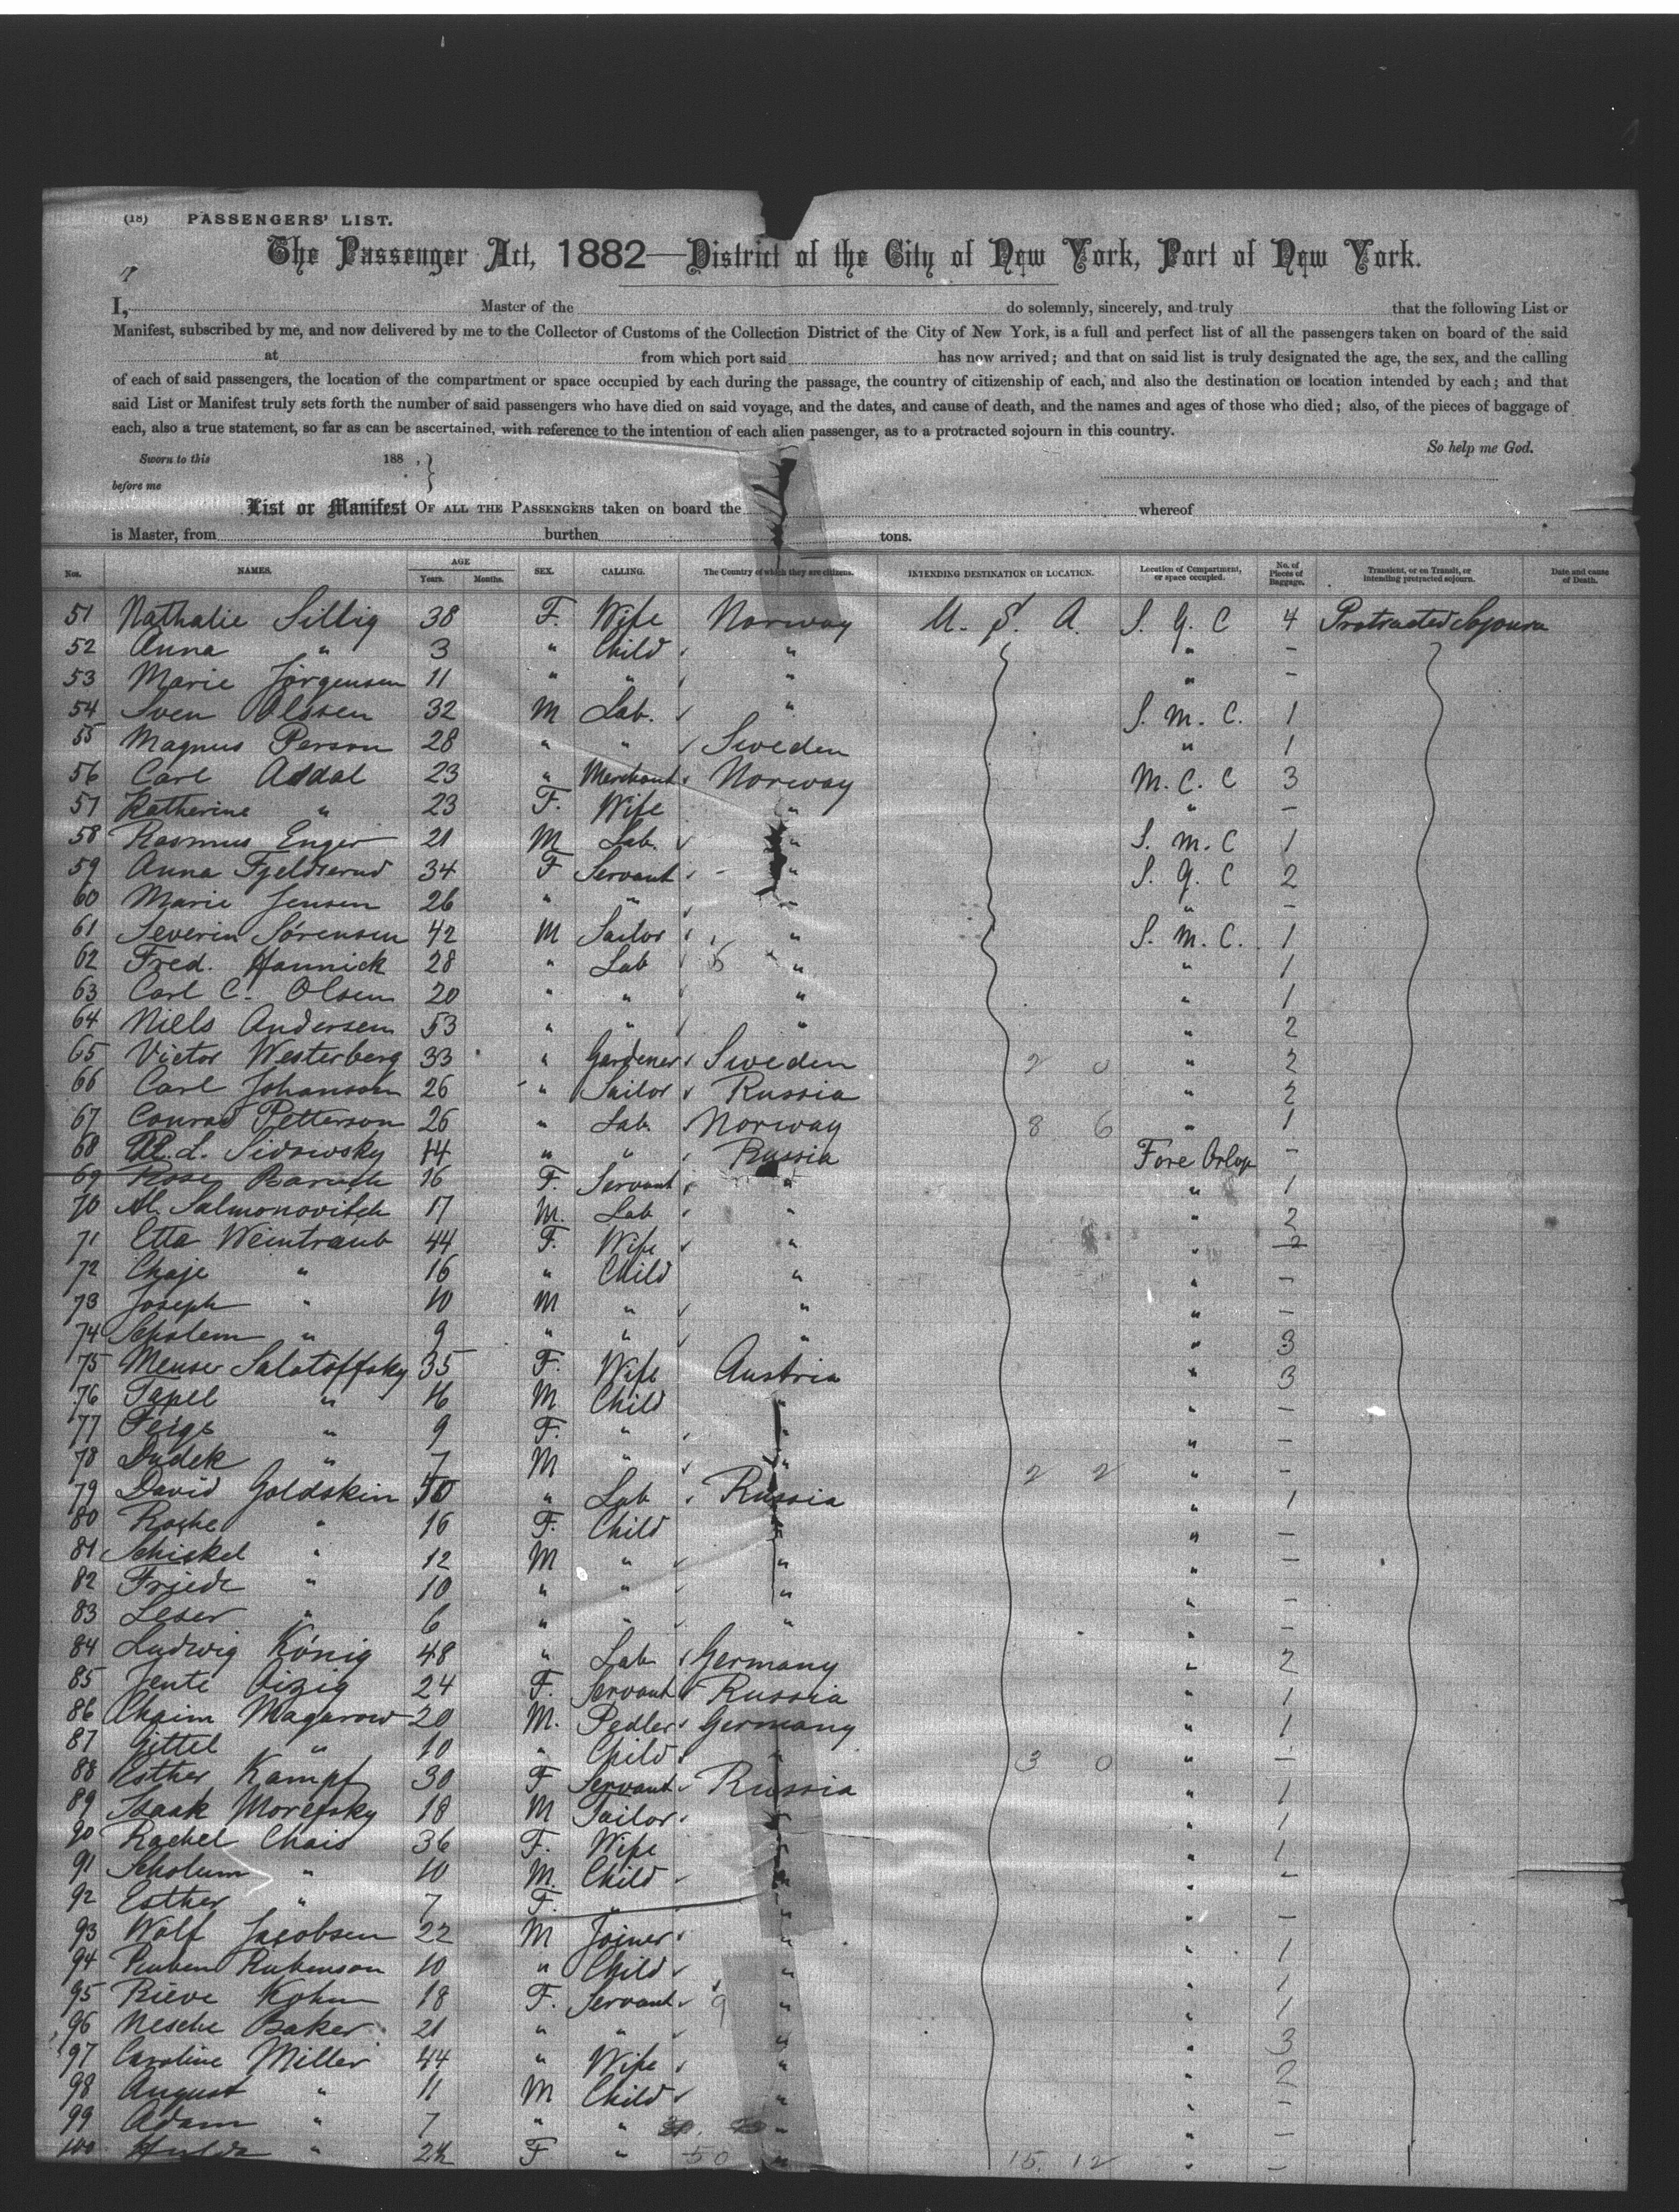 (18) PASSENGERS' LIST.
The Passenger Act, 1882—District of the City of New York, Port of New York.
I, Master of the do solemnly, sincerely, and truly that the following List or
Manifest, subscribed by me, and now delivered by me to the Collector of Customs of the Collection District of the City of New York, is a full and perfect list of all the passengers taken on board of the said
at from which port said has now arrived; and that on said list is truly designated the age, the sex, and the calling
of each of said passengers, the location of the compartment or space occupied by each during the passage, the country of citizenship of each, and also the destination or location intended by each; and that
said List or Manifest truly sets forth the number of said passengers who have died on said voyage, and the dates, and cause of death, and the names and ages of those who died; also, of the pieces of baggage of
each, also a true statement, so far as can be ascertained, with reference to the intention of each alien passenger, as to a protracted sojourn in this country.
So help me God.
Sworn to this 188 , }
before me
List or Manifest OF ALL THE PASSENGERS taken on board the whereof
is Master, from burthen tons.
Nos. NAMES. AGE Years. Months. SEX. CALLING. The Country of which they are citizens. INTENDING DESTINATION OR LOCATION. Location of Compartment, or space occupied. No. of Pieces of Baggage. Transient, or on Transit, or intending protracted sojourn. Date and cause of Death.
51 Nathalie Sillig 38 F. Wife Norway U. S. A. S. G. C 4 Protracted Sojourn
52 Anna " 3 " Child " " -
53 Marie Jörgensen 11 " " " " -
54 Sven Olssen 32 M Lab. " S. M. C. 1
55 Magnus Person 28 " " Sweden " 1
56 Carl Addal 23 " Merchant Norway M. C. C 3
57 Katherine " 23 F. Wife " " -
58 Rasmus Enger 21 M Lab. " S. M. C 1
59 Anna Fjeldserud 34 F Servant " S. G. C 2
60 Marie Jensen 26 " " " " -
61 Severin Sörensen 42 M Sailor " S. M. C. 1
62 Fred. Hannick 28 " Lab " " 1
63 Carl C. Olsen 20 " " " " 1
64 Niells Andersen 53 " " " " 2
65 Victor Westerberg 33 " Gardener Sweden 2 0 " 2
66 Carl Johansson 26 " Sailor Russia " 2
67 Conrad Petterson 26 " Lab. Norway 8 6 " 1
68 L. Sidowsky 14 " " Russia Fore Orlop -
69 Rose Baruch 16 F. Servant " " 1
70 Al. Salmonovitch 17 M. Lab " " 2
71 Etta Weintraub 44 F. Wife " " 2
72 Chaje " 16 " Child " " -
73 Joseph " 10 M " " " -
74 Scholem " 9 " " " " 3
75 Menser Salatoffsky 35 F. Wife Austria " 3
76 Tapel " M Child " " -
77 Feige " 9 F. " " " -
78 Dudek " 7 M " " 2 2 " -
79 David Goldskin 50 " Lab Russia " 1
80 Roche " 16 F. Child " " -
81 Schiskel " 12 M " " " -
82 Friede " 10 " " " " -
83 Leser " 6 " " " " -
84 Ludwig König 48 " Lab Germany " 2
85 Jente Aizig 24 F. Servant Russia " 1
86 Chaim Magarow 20 M. Pedler Germany " 1
87 Gittel " 10 " Child " 3 0 " -
88 Esther Kampf 30 F Servant Russia " 1
89 Isaak Morefsky 18 M Tailor " " 1
90 Rachel Chais 36 F. Wife " " 1
91 Scholum " 10 M. Child " " -
92 Esther " 7 F. " " " -
93 Wolf Jacobsen 22 M Joiner " " 1
94 Ruben Rubenson 10 " Child " " 1
95 Rieve Kohn 18 F. Servant 9 " " 1
96 Nesche Baker 21 " " " " 3
97 Caroline Miller 44 " Wife " " 2
98 August " 11 M Child " " -
99 Adam " 7 " " " " -
100 Hulda " F " 50 " 15. 12 " -